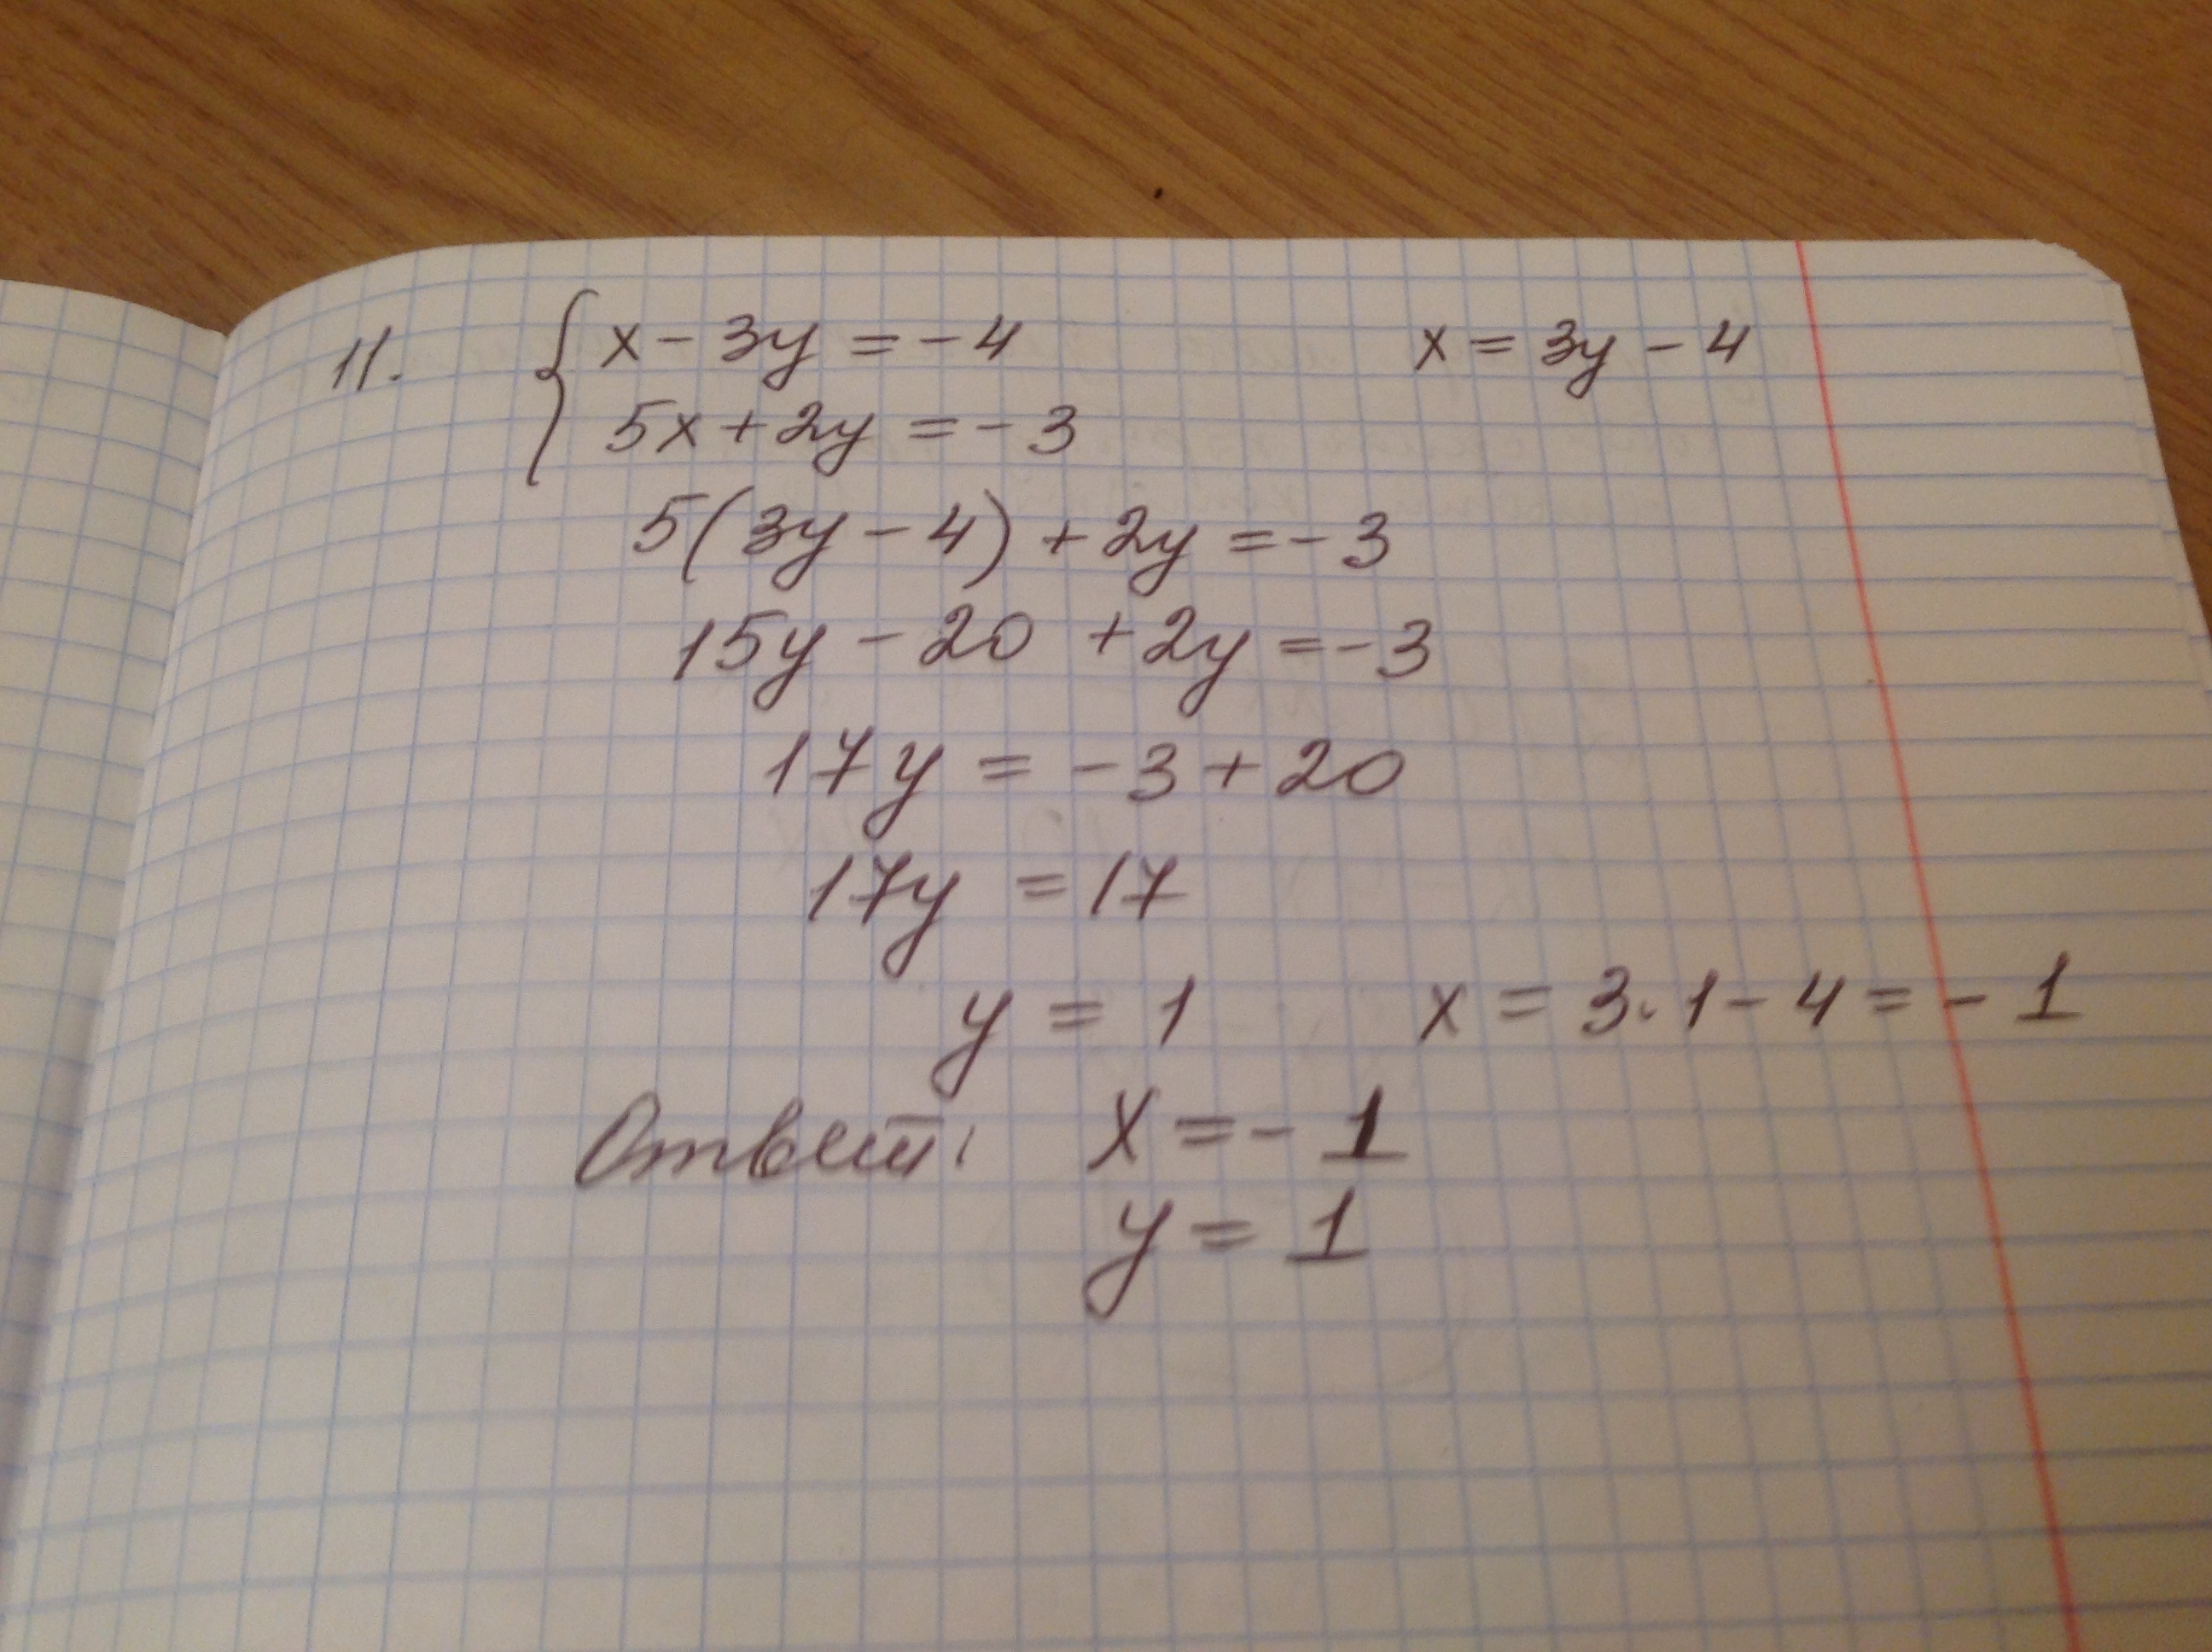 11. x - 3y = -4 x = 3y - 4
5x + 2y = -3
5(3y - 4) + 2y = -3
15y - 20 + 2y = -3
17y = -3 + 20
17y = 17
y = 1 x = 3·1 - 4 = -1
Ответ: x = -1
y = 1